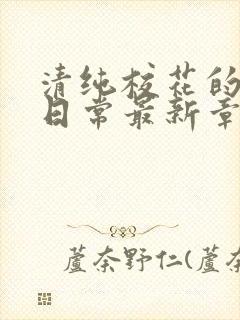 清纯校花的
日常最新章
蘆奈野仁(蘆奈